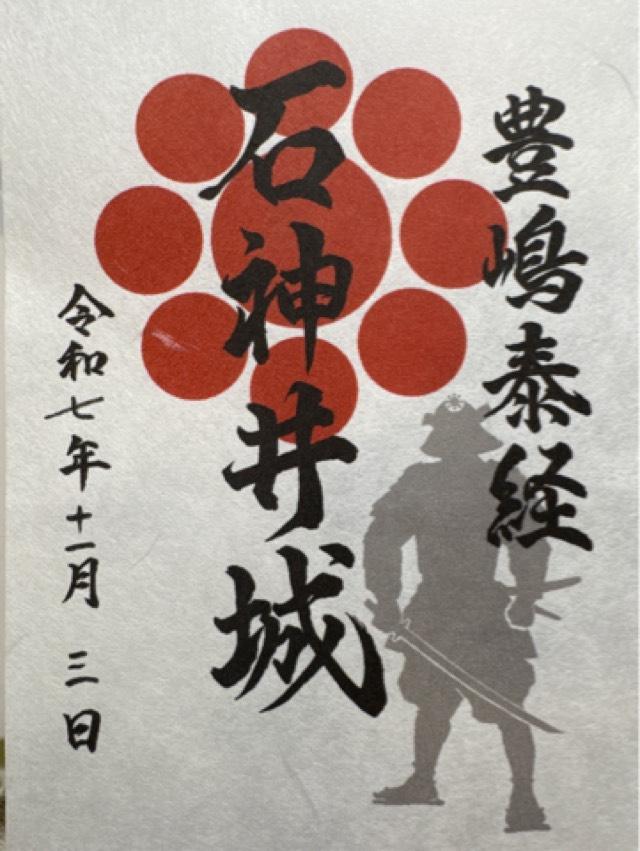 豊嶋泰経
石神井城
令和七年十一月 三日